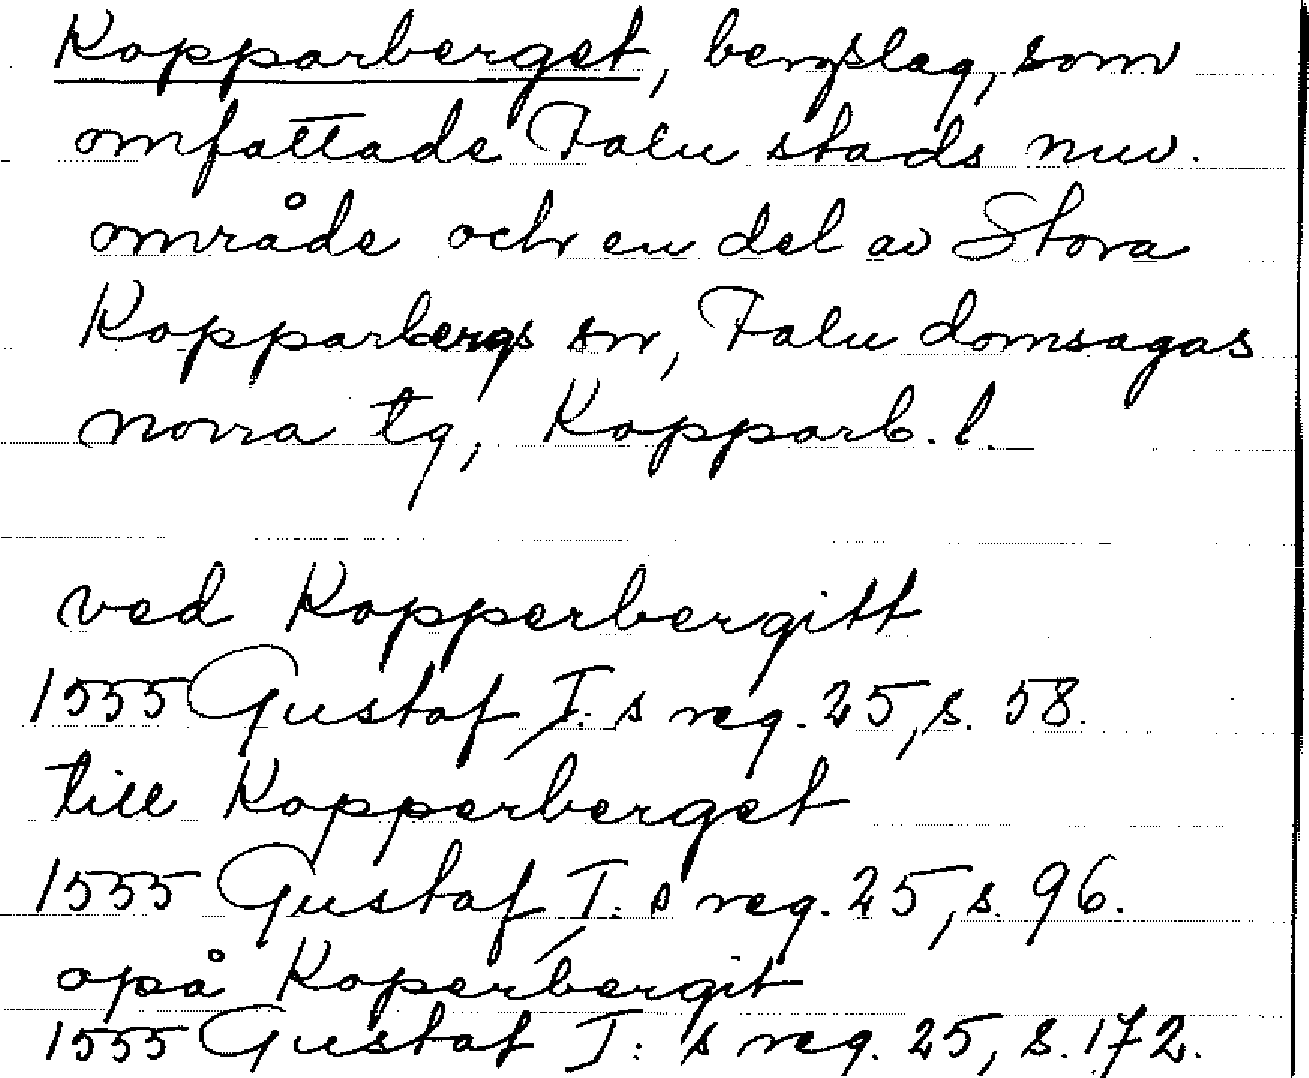 Kopparberget, bergslag, som
omfattade Falu stads nuv.
område och en del av Stora
Kopparbergs sn, Falu domsagas
norra tg, Kopparb. l.
ved Kopperbergitt
1555 Gustaf I: s reg. 25, s. 58.
till Kopperberget
1555 Gustaf I: s reg. 25, s. 96.
opå Koperbergit
1555 Gustaf I: s reg. 25, s. 172.